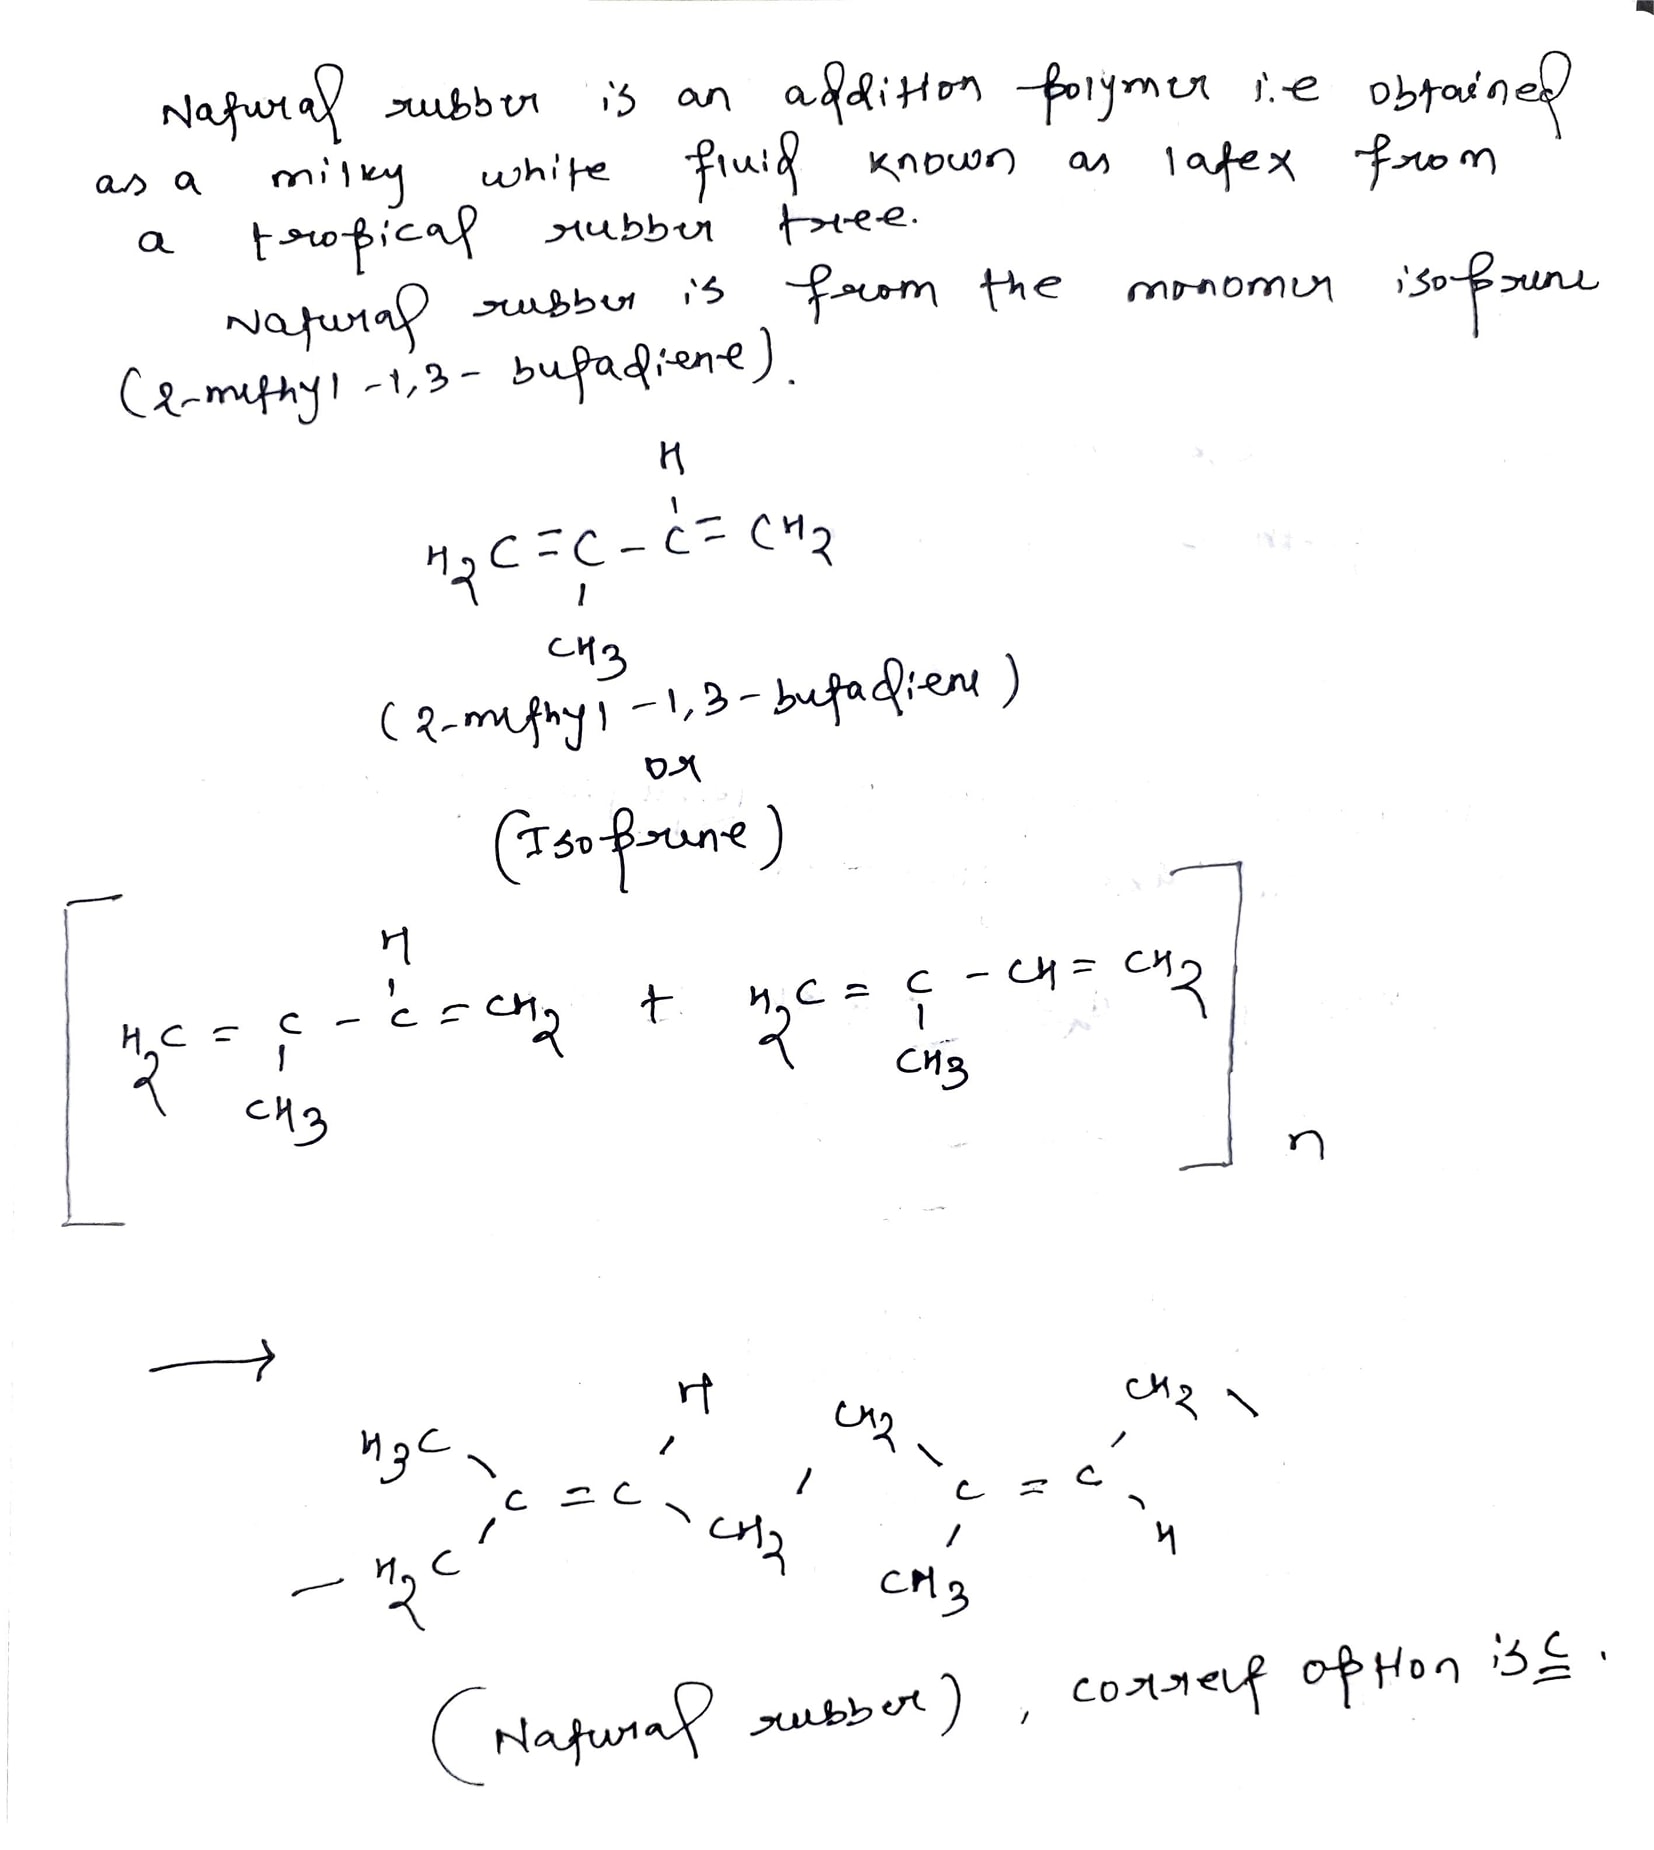 Natural rubber is an addition polymer i.e obtained
as a milky white fluid known as latex from
a tropical rubber tree.
Natural rubber is from the monomer isoprene
(2-methyl -1,3- butadiene).
H
H2C=C-C=CH2
CH3
(2-methyl -1,3-butadiene)
or
(Isoprene)
H
H2C = C - C = CH2 + H2C = C - CH = CH2
CH3 CH3
n
→
H CH2 CH2
H3C
C = C C = C
CH2 H
- H2C CH3
(Natural rubber), correct option is C.